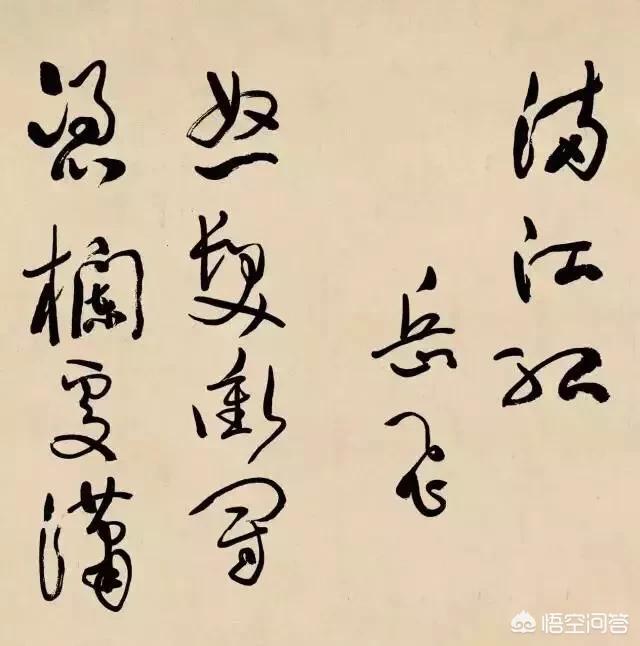 满江红
岳飞
怒发衝冠
凭欄处潇
悟空问答